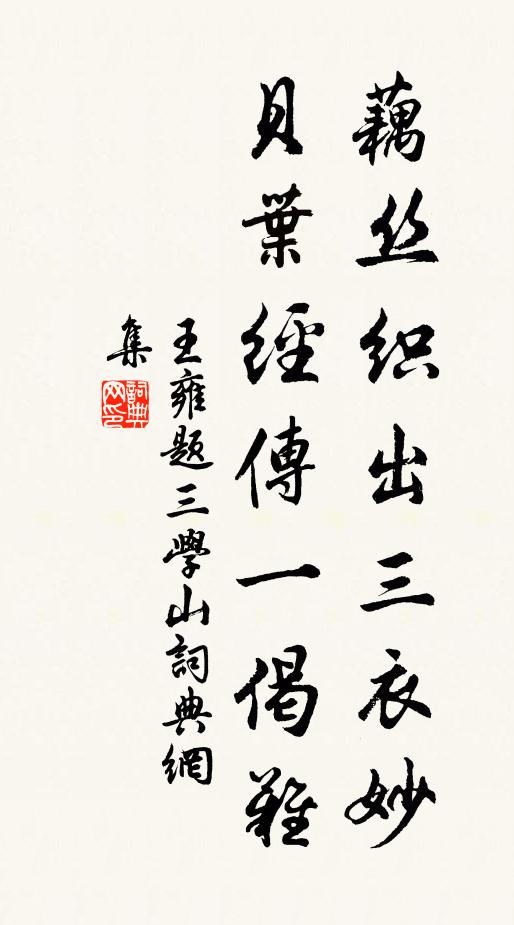 藕丝织出三衣妙
貝葉經傳一偈難
王雍題三學山詞典網
集
詞典
网印